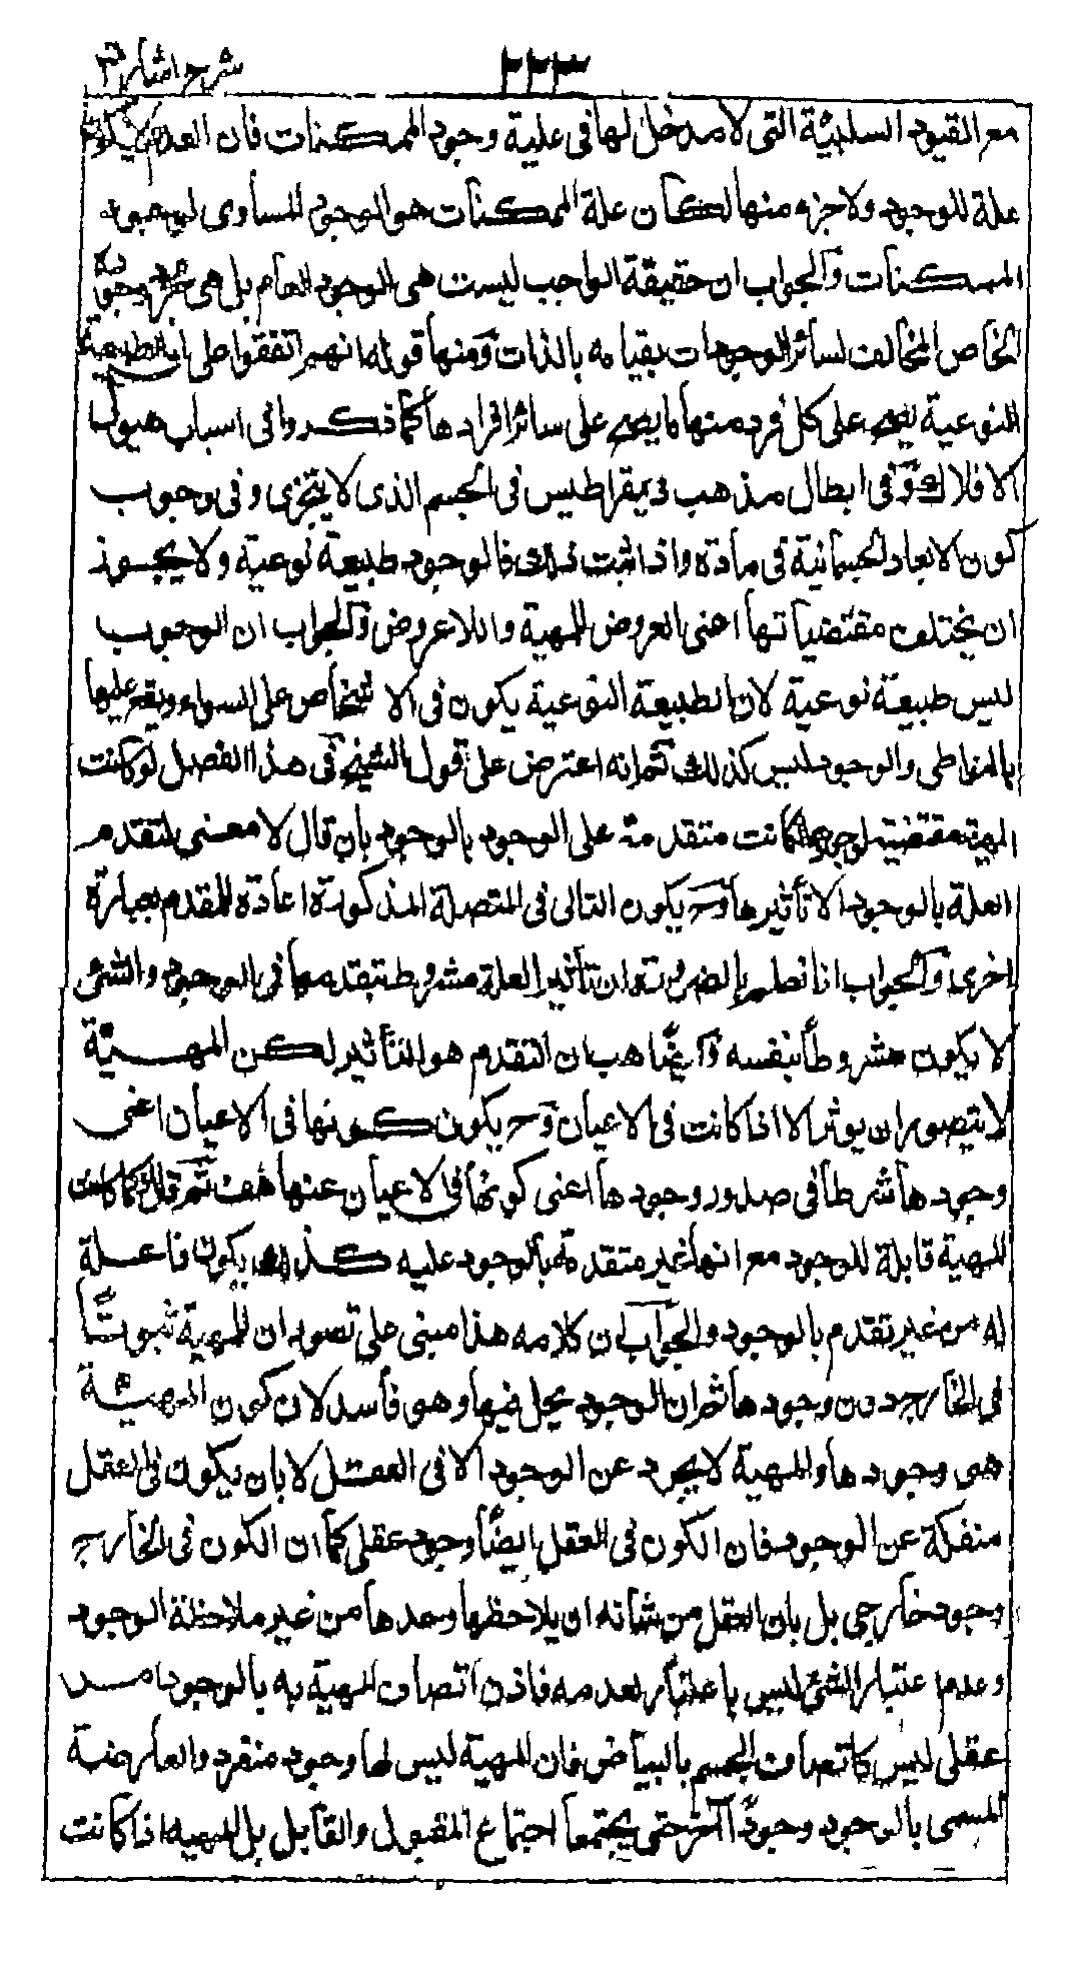 شرح اشارات
٢٢٣
مع القيود السلبية التى لا مدخل لها فى علية وجود الممكنات فان العدم لا يكون
علة للوجود ولا جزء منها لكان علة الممكنات هو الوجود المساوى لوجود
الممكنات والجواب ان حقيقة الواجب ليست هى الوجود العام بل هى وجوده
الخاص المخالف لسائر الوجودات بقيامه بالذات ومنها قوله انهم اتفقوا على ان الطبيعة
النوعية يصح على كل فرد منها ما يصح على سائر افرادها كما ذكروا فى اسباب هيولى
الافلاك وفى ابطال مذهب ذيمقراطيس فى الجسم الذى لا يتجزى وفى وجوب
كون الابعاد الجسمانية فى مادة واذا ثبت ذلك فالوجود طبيعة نوعية ولا يجوز
ان يختلف مقتضياتها اعنى العروض للمهية واللاعروض والجواب ان الوجوب
ليس طبيعة نوعية لان الطبيعة النوعية يكون فى الاشخاص على السواء ويقع عليها
بالتواطى والوجود ليس كذلك ثم انه اعترض على قول الشيخ فى هذا الفصل لو كانت
المهية مقتضية لوجودها لكانت متقدمة على الوجود بالوجود بان قال لا معنى لتقدم
العلة بالوجود الا تأثيرها وح يكون التالى فى المتصلة المذكورة اعادة للمقدم بعبارة
اخرى والجواب انا نعلم بالضرورة ان تأثير العلة مشروط بتقدمها فى بالوجود والشئ
لا يكون مشروطا بنفسه وايضا هب ان التقدم هو التأثير لكن المهية
لا يتصور ان يوثر الا اذا كانت فى الاعيان وح يكون كونها فى الاعيان اعنى
وجودها شرطا فى صدور وجودها اعنى كونها فى الاعيان عنها هف ثم قال كما كانت
المهية قابلة للوجود مع انها غير متقدمة بالوجود عليه كذلك يكون فاعلة
له من غير تقدم بالوجود والجواب ان كلامه هذا مبنى على تصور ان للمهية ثبوتا
فى الخارج دون وجودها ثم ان الوجود يحل فيها وهو فاسد لان كون المهية
هى وجودها والمهية لا يجرد عن الوجود الا فى العقل لا بان يكون فى العقل
منفكة عن الوجود فان الكون فى العقل ايضا وجود عقلى كما ان الكون فى الخارج
وجود خارجى بل بان العقل من شانه ان يلاحظها وحدها من غير ملاحظة الوجود
وعدم اعتبار الشئ ليس باعتبار لعدمه فاذن اتصاف المهية به بالوجود امر
عقلى ليس كاتصاف الجسم بالبياض فان المهية ليس لها وجود منفرد ولعارضه
المسمى بالوجود وجودا آخر حتى يجتمعا اجتماع المقبول والقابل بل المهيه اذا كانت